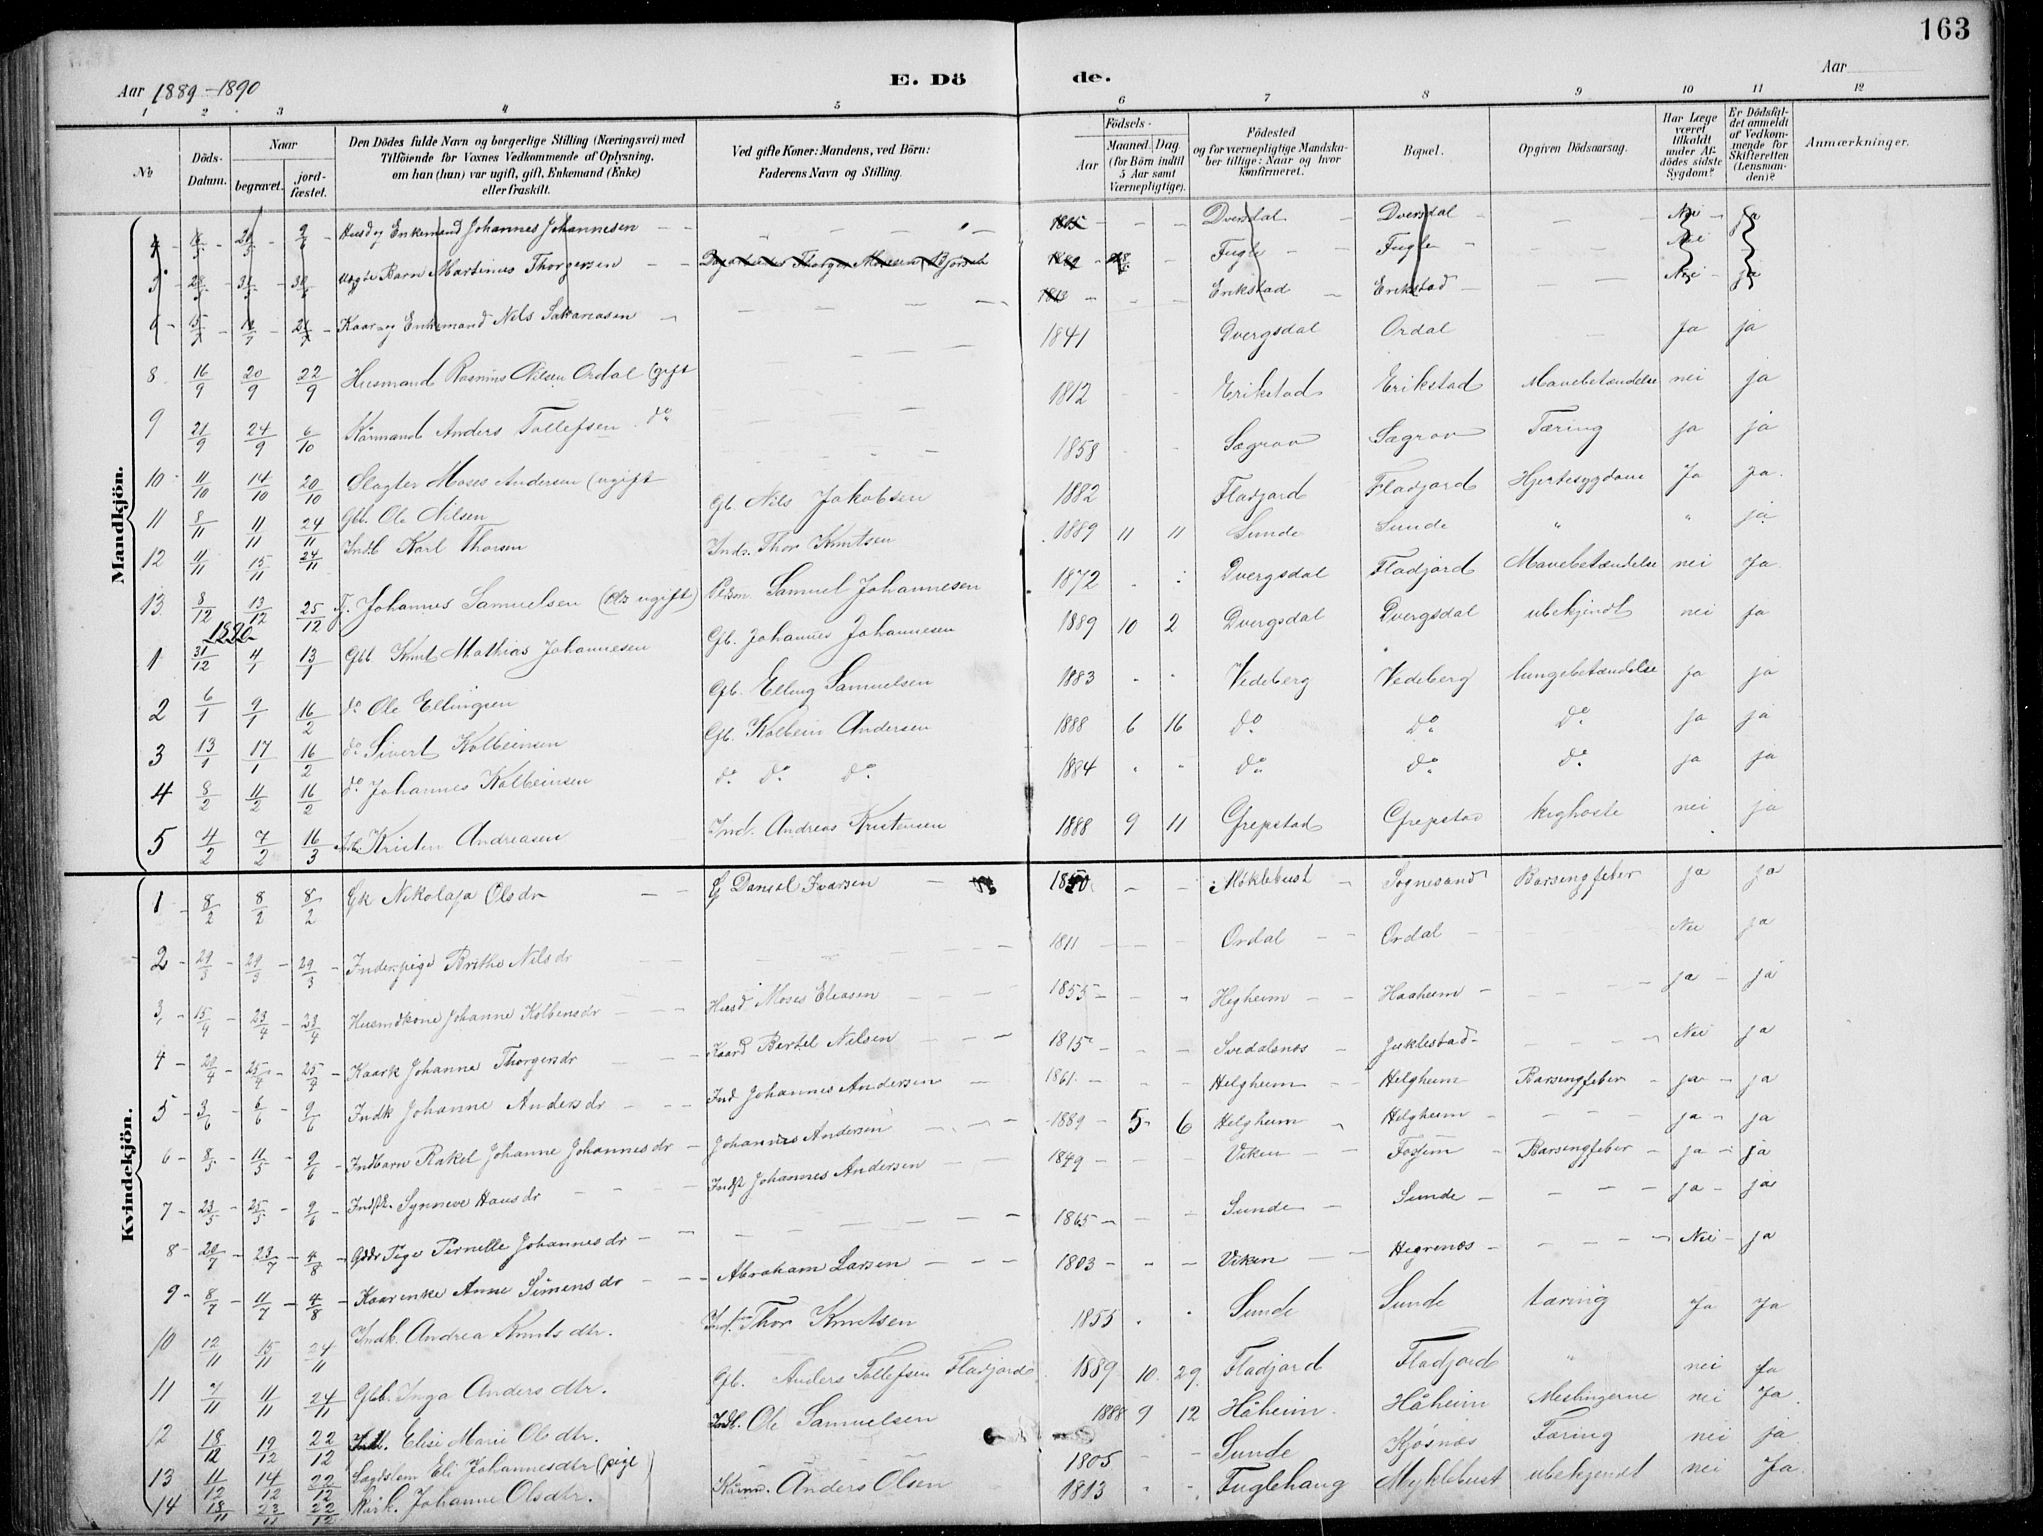 163
Aar 1889-1890
E. Dö de.
Aar
1 2 3 4 5 6 7 8 9 10 11 12
No
Döds-Datum.
Naar
begravet.
jord-fæstet.
Den Dödes fulde Navn og borgerlige Stilling (Næringsvei) med Tilföiende for Voxnes Vedkommende af Oplysning, om han (hun) var ugift, gift, Enkemand (Enke) eller fraskilt.
Ved gifte Koner: Mandens, ved Börn: Faderens Navn og Stilling.
Födsels-
Aar
Maaned. Dag.
(for Börn indtil 5 Aar samt Værnepligtige).
Födested og for værnepligtige Mandskaber tillige: Naar og hvor konfirmeret.
Bopæl.
Opgiven Dödsaarsag.
Har Læge været tilkaldt under Afdödes sidste Sygdom?
Er Dödsfaldet anmeldt af Vedkommende for Skifteretten (Lensmanden)?
Anmærkninger.
Mandkjön.
4 Husd og Enkemand Johannes Johannesen 1815 Dversdal Dversdal Nei ja
5 uægte Barn Martinus Thorgersen Fugle Fugle Nei
6 Kaar og Enkemand Nels Sakariasen Erikstad Erikstad Nei ja
8 16/9 20/9 22/9 Husmand Rasmus Nilsen Ordal (gift 1841 Dvergsdal Ordal Ja ja
9 21/9 24/9 6/10 Kårmand Anders Tollefsen do 1812 Erikstad Erikstad Mavebetændelse nei ja
10 11/10 14/10 20/10 Slagter Moses Andersen (ugift 1858 Sægrov Sægrov Tæring ja ja
11 8/11 11/11 24/11 Gbb. Ole Nilsen Gb Nils Jakobsen 1882 Fladjord Fladjord Hjertesygdom Ja ja.
12 11/11 15/11 24/11 Indb Karl Thorsen Inds. Thor Knutsen 1889 11 11 Sunde Sunde " " ja
13 8/12 13/12 25/12 Tj. Johannes Samuelsen (ugift) Samuel Johannesen 1872 Dvergsdal Fladjord Mavebetændelse nei Ja
1890
1 31/12 4/1 13/1 Gbb Knut Mathias Johannesen Gb. Johannes Johannesen 1889 10 2 Dvergsdal Dvergsdal ubekjendt nei ja
2 6/1 9/1 16/2 do Ole Ellingsen Gb. Elling Samuelsen 1883 " " Vedeberg Vedeberg lungebetændelse ja ja
3 13/1 17/1 16/2 do Sivert Kolbeinsen Gb. Kolbein Andersen 1888 6 16 do do do ja ja
4 8/2 11/2 16/2 do Johannes Kolbeinsen do do do 1884 " " do do do ja ja
5 4/2 7/2 16/3 Kristen Andreasen Ind. Andreas Kristensen 1888 9 11 Grepstad Grepstad kighoste nei ja
Kvindekjön.
1 8/2 8/2 8/2 Gk Nikolaja Olsdr G Daniel Ivarsen Møklebust Sognesand Barsengfeber ja ja
2 29/3 29/3 29/3 Inderspige Brithe Nilsdr 1811 Ordal Ordal Nei ja
3 15/4 23/4 23/4 Husmdkone Johanne Kolbensdr Husd Moses Eliasen 1855 Hegheim Haaheim ja ja
4 20/4 25/4 25/4 Kaark Johanna Thorgersdr Kaard Bertel Nilsen 1815 Svedalsnes Juklestad Nei ja
5 3/6 6/6 9/6 Indk Johanne Andersdr Ind Johannes Andersen 1861 Helgheim Helgheim Barsengfeber ja ja
6 8/5 11/5 9/6 Indbarn Rakel Johanne Johannesdr Johannes Andersen 1889 5 6 Helgheim Helgheim ja ja
7 23/5 25/5 9/6 Synneve Hansdr Indst Johannes Andersen 1849 Viken Fossjem Barsengfeber ja ja
8 20/7 23/7 4/8 Gddr Pige Pernelle Johannesdr 1865 Sunde Sunde ja ja
9 8/7 11/7 4/8 Kaarenke Anne Simensdr Abraham Larsen 1803 Viken Hegrenæs Nei ja
10 12/11 15/11 24/11 Indk. Andrea Knutsdtr. Thor Knutsen 1855 Sunde Sunde tæring Ja Ja
11 7/11 11/11 24/11 Gbb. Inga Andersdtr. Gb. Anders Tollefsen Fladjord 1889 10 29 Fladjord Fladjord " nei Ja
12 18/12 19/12 22/12 Elise Marie Olsdtr. Indb. Ole Samuelsen 1888 9 12 Håheim Håheim Meslingerne nei Ja.
13 11/12 14/12 22/12 Lægdslem Eli Johannesdtr (pige) 1805 Sunde Kjøsnæs Tæring nei ja
14 18/11 23/11 22/12 Kårk. Johanne Olsdtr. Anders Olsen 1813 Fuglehaug Myklebust ubekjendt nei Ja.